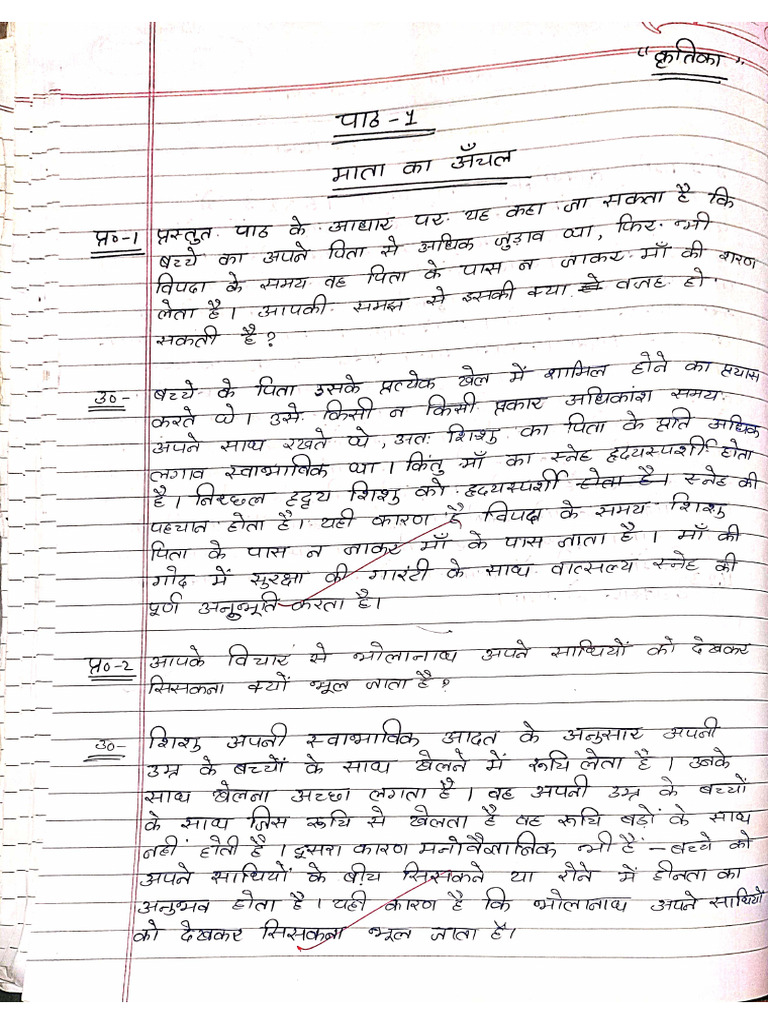 "कृतिका"
पाठ - 1
माता का अँचल
प्र०-1 प्रस्तुत पाठ के आधार पर यह कहा जा सकता है कि
बच्चे का अपने पिता से अधिक जुड़ाव था, फिर भी
विपदा के समय वह पिता के पास न जाकर माँ की शरण
लेता है। आपकी समझ से इसकी क्या वजह हो
सकती है?
उ०- बच्चे के पिता उसके प्रत्येक खेल में शामिल होने का प्रयास
करते थे। उसे किसी न किसी प्रकार अधिकांश समय
अपने साथ रखते थे, अतः शिशु का पिता के प्रति अधिक
लगाव स्वाभाविक था। किंतु माँ का स्नेह हृदयस्पर्शी होता
है। निच्छल हृदय शिशु को हृदयस्पर्शी होता है। स्नेह की
पहचान होता है। यही कारण है विपदा के समय शिशु
पिता के पास न जाकर माँ के पास जाता है। माँ की
गोद में सुरक्षा की गारंटी के साथ वात्सल्य स्नेह की
पूर्ण अनुभूति करता है।
प्र०-2 आपके विचार से भोलानाथ अपने साथियों को देखकर
सिसकना क्यों भूल जाता है?
उ०- शिशु अपनी स्वाभाविक आदत के अनुसार अपनी
उम्र के बच्चों के साथ खेलने में रूचि लेता है। उनके
साथ खेलना अच्छा लगता है। वह अपनी उम्र के बच्चों
के साथ जिस रूचि से खेलता है वह रूचि बड़ों के साथ
नहीं होती है। दूसरा कारण मनोवैज्ञानिक भी है - बच्चे को
अपने साथियों के बीच सिसकते या रोने में हीनता का
अनुभव होता है। यही कारण है कि भोलानाथ अपने साथियों
को देखकर सिसकना भूल जाता है।